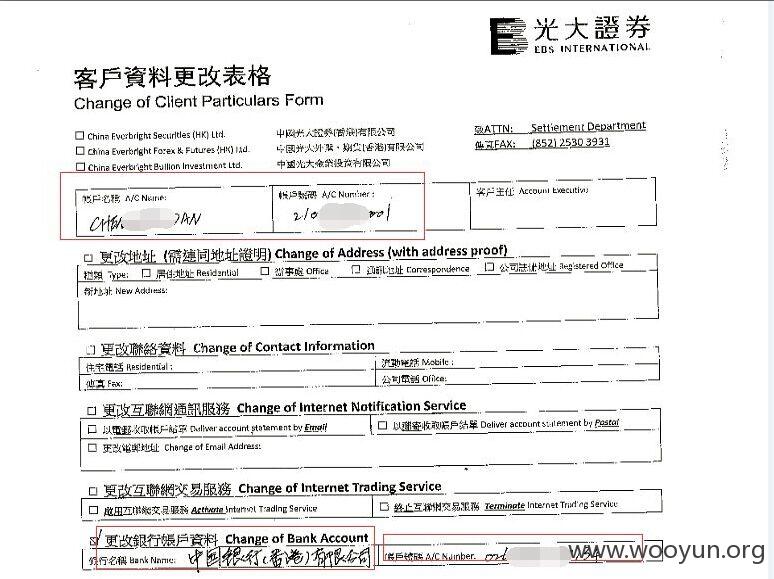 光大證券
EBS INTERNATIONAL
客戶資料更改表格
Change of Client Particulars Form
China Everbright Securities (HK) Ltd. 中國光大證券(香港)有限公司
China Everbright Forex & Futures (HK) Ltd. 中國光大外匯、期貨(香港)有限公司
China Everbright Bullion Investment Ltd. 中國光大金業投資有限公司
ATTN: Settlement Department
傳真FAX: (852) 2530 3931
帳戶名稱 A/C Name: 帳戶號碼 A/C Number: 客戶主任 Account Executive
更改地址 (需連同地址證明) Change of Address (with address proof)
種類 Type: 居住地址 Residential 辦事處 Office 通訊地址 Correspondence 公司註冊地址 Registered Office
新地址 New Address:
更改聯絡資料 Change of Contact Information
住宅電話 Residential : 流動電話 Mobile :
傳真 Fax: 公司電話 Office:
更改互聯網通訊服務 Change of Internet Notification Service
以電郵收取帳戶結單 Deliver account statement by Email 以郵寄收取帳戶結單 Deliver account statement by Postal
更改電郵地址 Change of Email Address:
更改互聯網交易服務 Change of Internet Trading Service
啟用互聯網交易服務 Activate Internet Trading Service 終止互聯網交易服務 Terminate Internet Trading Service
更改銀行帳戶資料 Change of Bank Account
銀行名稱 Bank Name: 中国银行(香港)有限公司 帳戶號碼 A/C Number.
www.wooyun.org